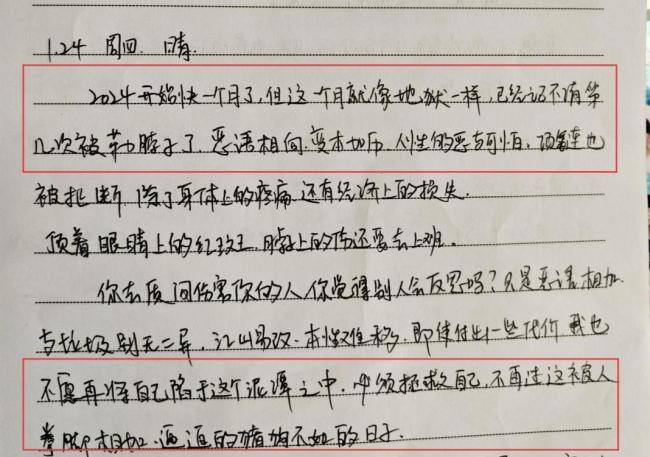 1.24 周四. 晴.
2024开始快一个月了,但这一个月就像地狱一样,已经记不清第
几次被勒脖子了.恶语相向.变本加厉.人性的恶真可怕.项链也
被扯断 除了身体上的疼痛 还有经济上的损失.
顶着眼睛上的红斑,脖子上的伤还要去上班.
你去质问伤害你的人,你觉得别人会反思吗?只是恶语相加
与垃圾别无二异,江山易改.本性难移.即使付出一些代价 我也
不愿再将自己陷于这个泥潭之中.必须拯救自己,不再过这被人
拳脚相加.逼迫的猪狗不如的日子.